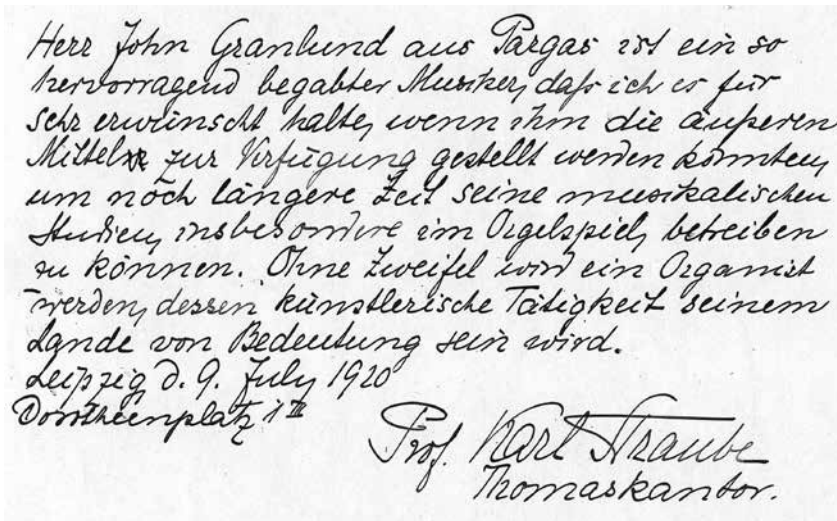 Herr John Granlund aus Pargas ist ein so
hervorragend begabter Musiker, daß ich es für
sehr erwünscht halte, wenn ihm die äußeren
Mittel zur Verfügung gestellt werden könnten,
um noch längere Zeit seine musikalischen
Studien, insbesondere im Orgelspiel, betreiben
zu können. Ohne Zweifel wird ein Organist
werden, dessen künstlerische Tätigkeit seinem
Lande von Bedeutung sein wird.
Leipzig d. 9. July 1920
Dorotheenplatz 1 III
Prof. Karl Straube
Thomaskantor.